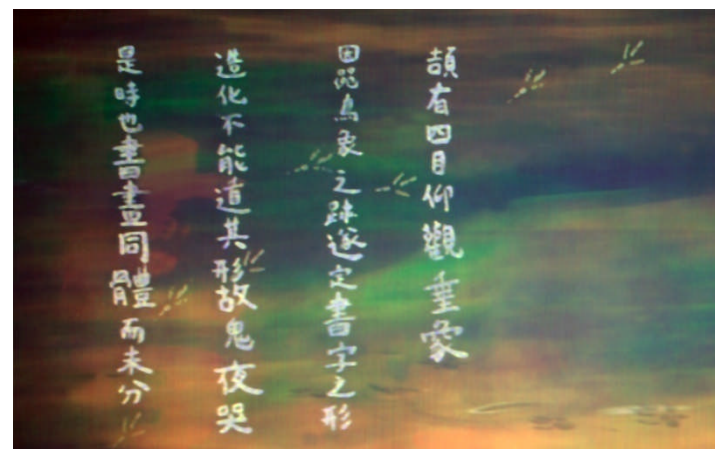 頡有四目仰觀垂象
因儷鳥象之跡遂定書字之形
造化不能遁其形故鬼夜哭
是時也書畫同體而未分